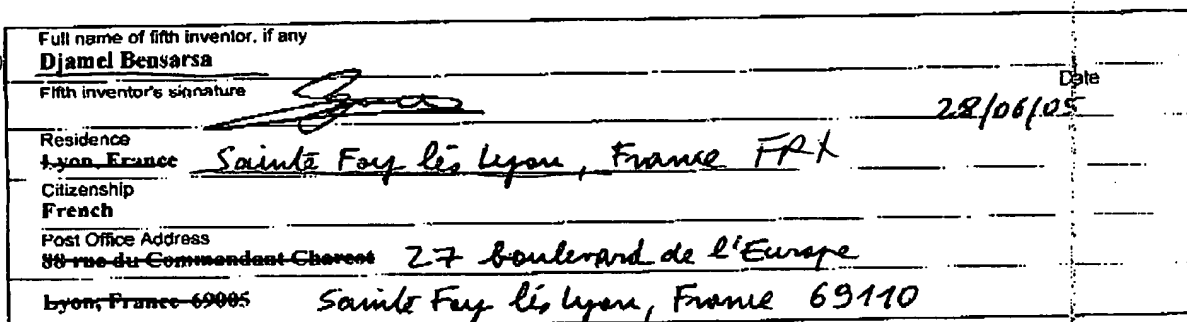 Full name of fifth inventor, if any
Djamel Bensarsa
Fifth inventor's signature Date
28/06/05
Residence
Lyon, France Sainte Foy lès Lyon, France FRX
Citizenship
French
Post Office Address
88 rue du Commandant Charcot 27 boulevard de l'Europe
Lyon, France 69005 Sainte Foy lès Lyon, France 69110